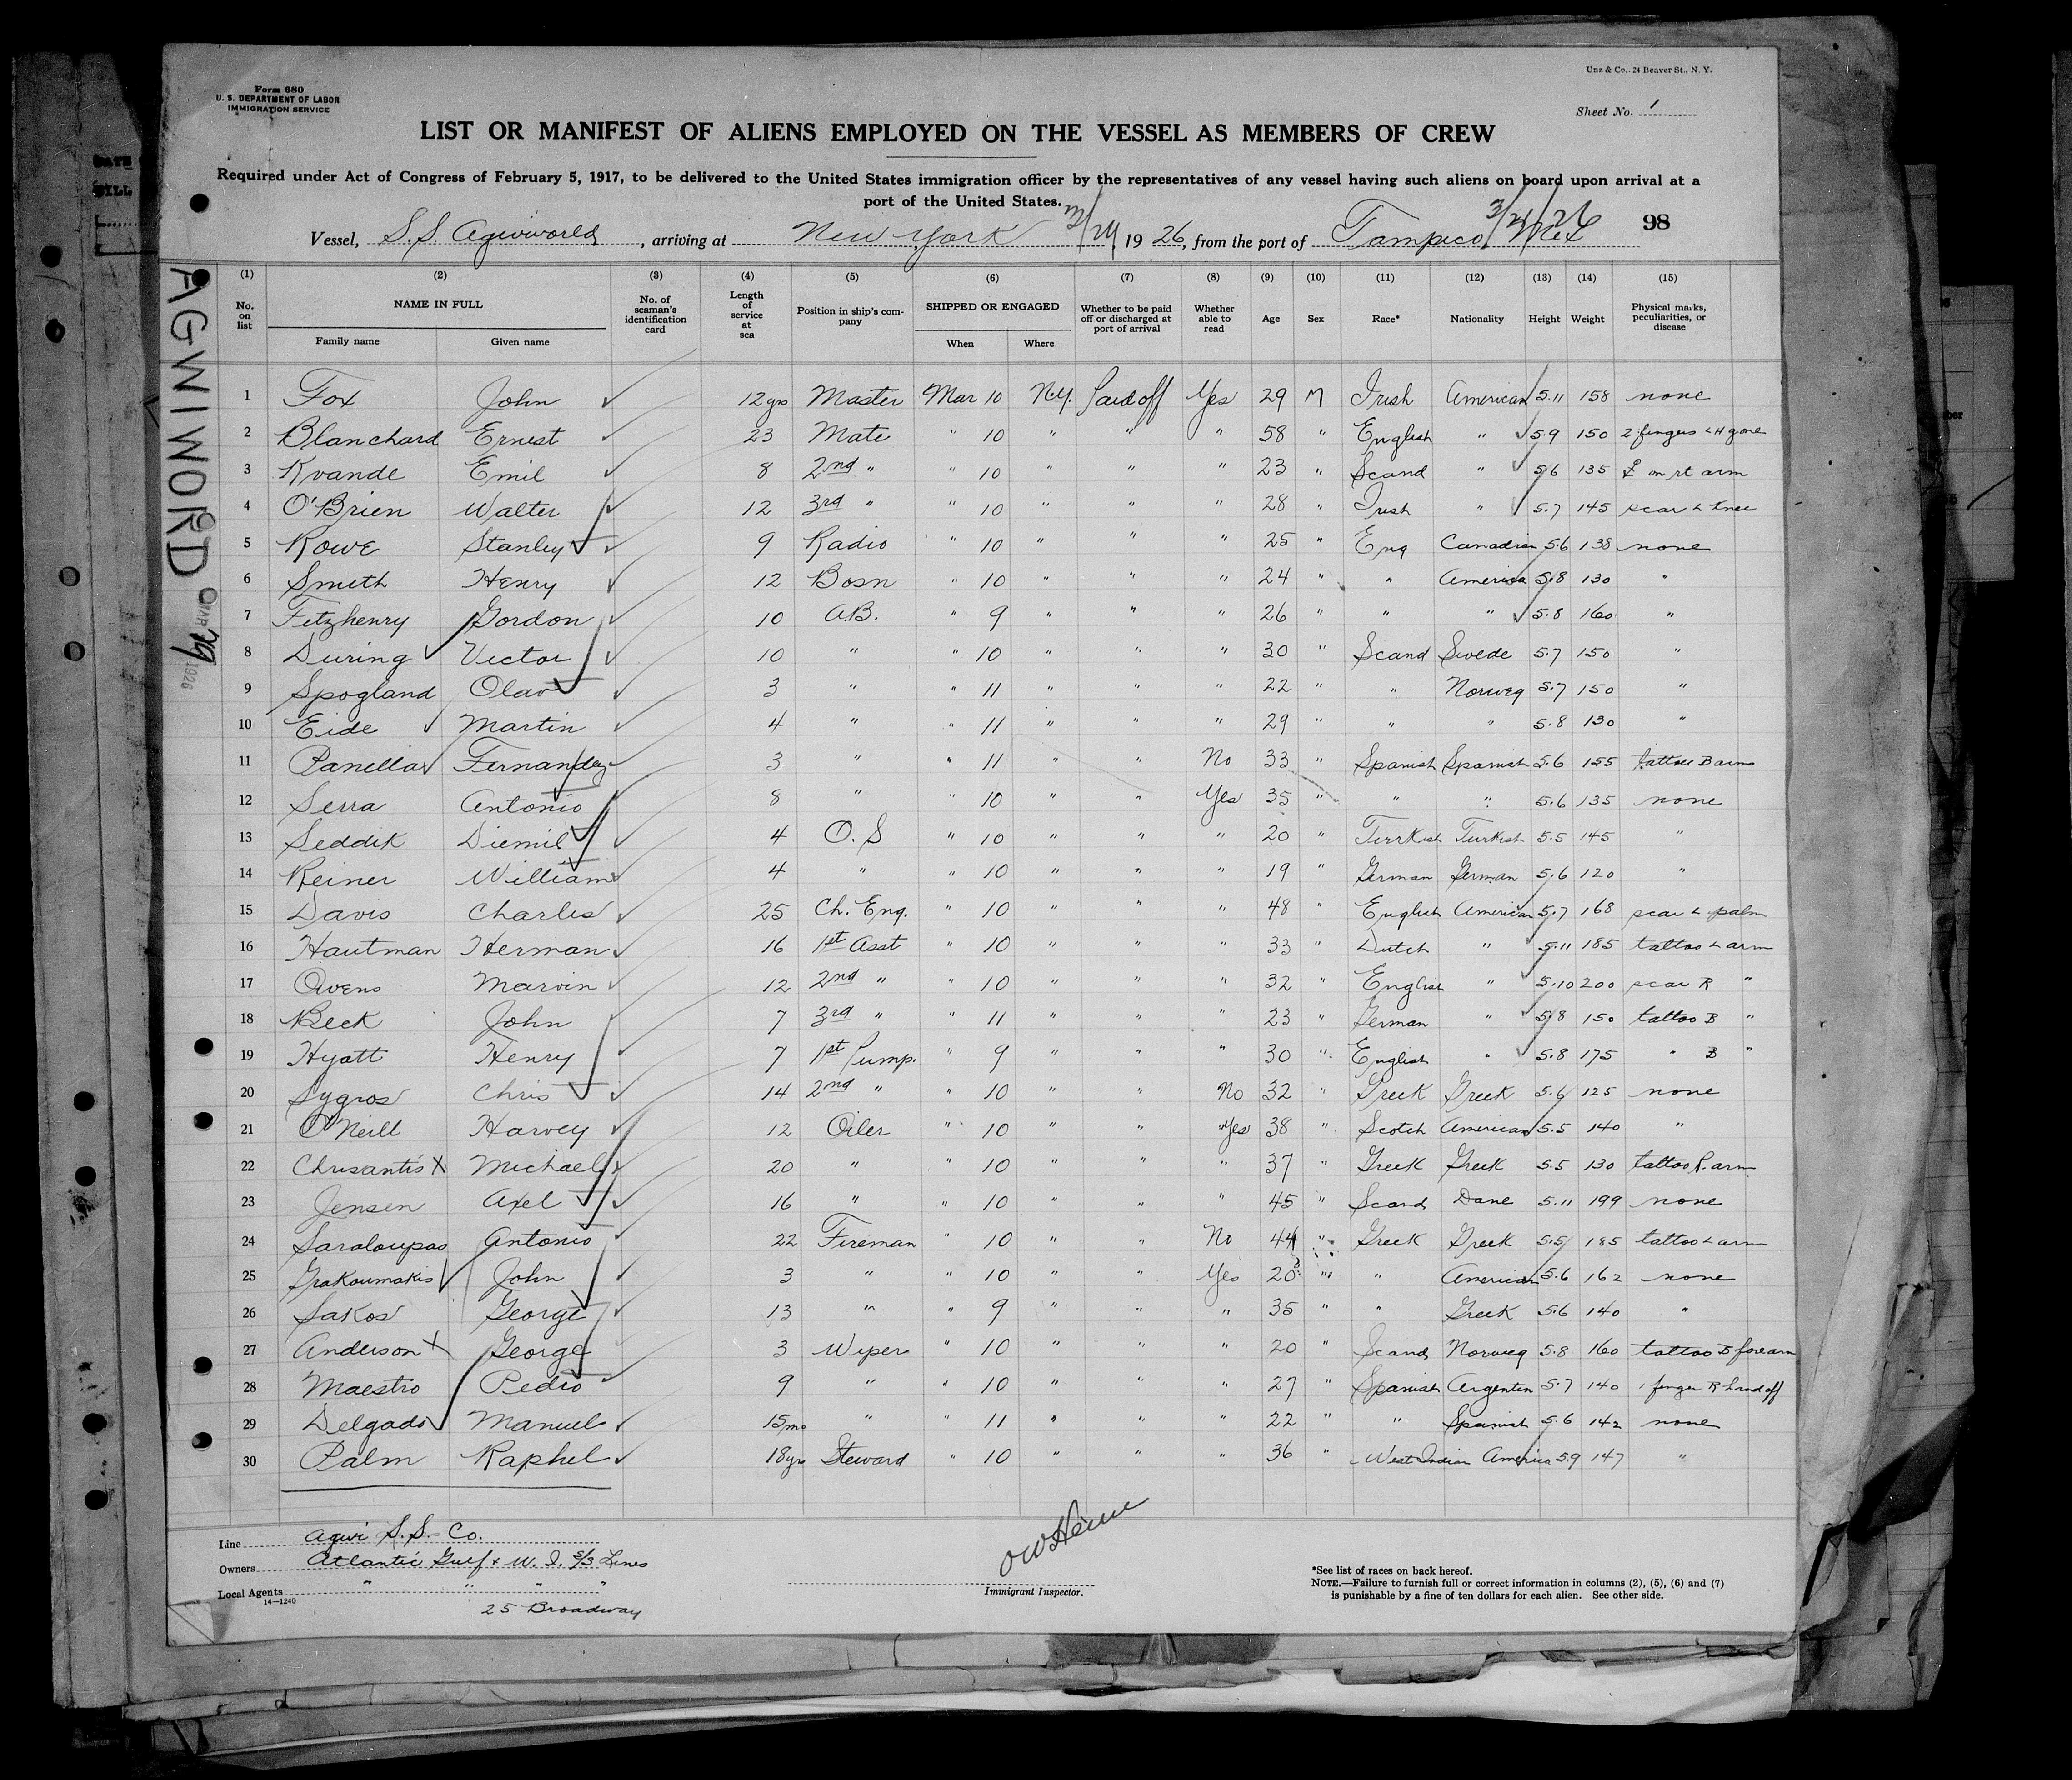 Unz & Co., 24 Beaver St., N. Y.
Form 680
U. S. DEPARTMENT OF LABOR
IMMIGRATION SERVICE
Sheet No. 1
LIST OR MANIFEST OF ALIENS EMPLOYED ON THE VESSEL AS MEMBERS OF CREW
Required under Act of Congress of February 5, 1917, to be delivered to the United States immigration officer by the representatives of any vessel having such aliens on board upon arrival at a
port of the United States.
3/21/26
98
Vessel, S.S. Agwiworld, arriving at New York 3/29 1926, from the port of Tampico, Mex
AGWIWORLD
MAR 29 1926
(1) (2) (3) (4) (5) (6) (7) (8) (9) (10) (11) (12) (13) (14) (15)
No. on list NAME IN FULL Family name Given name No. of seaman's identification card Length of service at sea Position in ship's company SHIPPED OR ENGAGED When Where Whether to be paid off or discharged at port of arrival Whether able to read Age Sex Race* Nationality Height Weight Physical marks, peculiarities, or disease
1 Fox John 12 yrs Master Mar 10 N.Y. Paid off Yes 29 M Irish American 5.11 158 none
2 Blanchard Ernest 23 Mate " 10 " " " 58 " English " 5.9 150 2 fingers L H gone
3 Kvande Emil 8 2nd " " 10 " " " 23 " Scand " 5.6 135 on rt arm
4 O'Brien Walter 12 3rd " " 10 " " " 28 " Irish " 5.7 145 scar L knee
5 Rowe Stanley 9 Radio " 10 " " " 25 " Eng Canadian 5.6 138 none
6 Smith Henry 12 Bosn " 10 " " " 24 " " America 5.8 130 "
7 Fitzhenry Gordon 10 A.B. " 9 " " " 26 " " " 5.8 160 "
8 During Victor 10 " " 10 " " " 30 " Scand Swede 5.7 150 "
9 Spogland Olav 3 " " 11 " " " 22 " " Norweg 5.7 150 "
10 Eide Martin 4 " " 11 " " " 29 " " " 5.8 130 "
11 Panella Fernandez 3 " " 11 " " No 33 " Spanish Spanish 5.6 155 tattoo B arms
12 Serra Antonio 8 " " 10 " " Yes 35 " " " 5.6 135 none
13 Seddik Diemil 4 O. S " 10 " " " 20 " Turkish Turkish 5.5 145 "
14 Reiner William 4 " " 10 " " " 19 " German German 5.6 120 "
15 Davis Charles 25 Ch. Eng. " 10 " " " 48 " English American 5.7 168 scar L palm
16 Hautman Herman 16 1st Asst " 10 " " " 33 " Dutch " 5.11 185 tattoo L arm
17 Owens Marvin 12 2nd " " 10 " " " 32 " English " 5.10 200 scar R "
18 Beck John 7 3rd " " 11 " " " 23 " German " 5.8 150 tattoo B "
19 Hyatt Henry 7 1st Pump. " 9 " " " 30 " English " 5.8 175 " B "
20 Sygros Chris 14 2nd " " 10 " " No 32 " Greek Greek 5.6 125 none
21 O'Neill Harvey 12 Oiler " 10 " " Yes 38 " Scotch American 5.5 140 "
22 Chrisantis X Michael 20 " " 10 " " " 37 " Greek Greek 5.5 130 tattoo R. arm
23 Jensen Axel 16 " " 10 " " " 45 " Scand Dane 5.11 199 none
24 Saraloupas Antonio 22 Fireman " 10 " " No 44 " Greek Greek 5.5 185 tattoo L arm
25 Grakoumakis John 3 " " 10 " " Yes 20 " " American 5.6 162 none
26 Sakos George 13 " " 9 " " " 35 " " Greek 5.6 140 "
27 Anderson X George 3 Wiper " 10 " " " 20 " Scand Norweg 5.8 160 tattoo B forearm
28 Maestro Pedro 9 " " 10 " " " 27 " Spanish Argentin 5.7 140 1 finger R hand off
29 Delgado Manuel 15 mo " " 11 " " " 22 " " Spanish 5.6 142 none
30 Palm Raphel 18 yr Steward " 10 " " " 36 " West Indian America 5.9 147 "
Line Agwi S.S. Co.
Owners Atlantic Gulf & W. I. S/S Lines
Local Agents " " " "
14—1240
25 Broadway
Immigrant Inspector.
*See list of races on back hereof.
NOTE.—Failure to furnish full or correct information in columns (2), (5), (6) and (7)
is punishable by a fine of ten dollars for each alien. See other side.